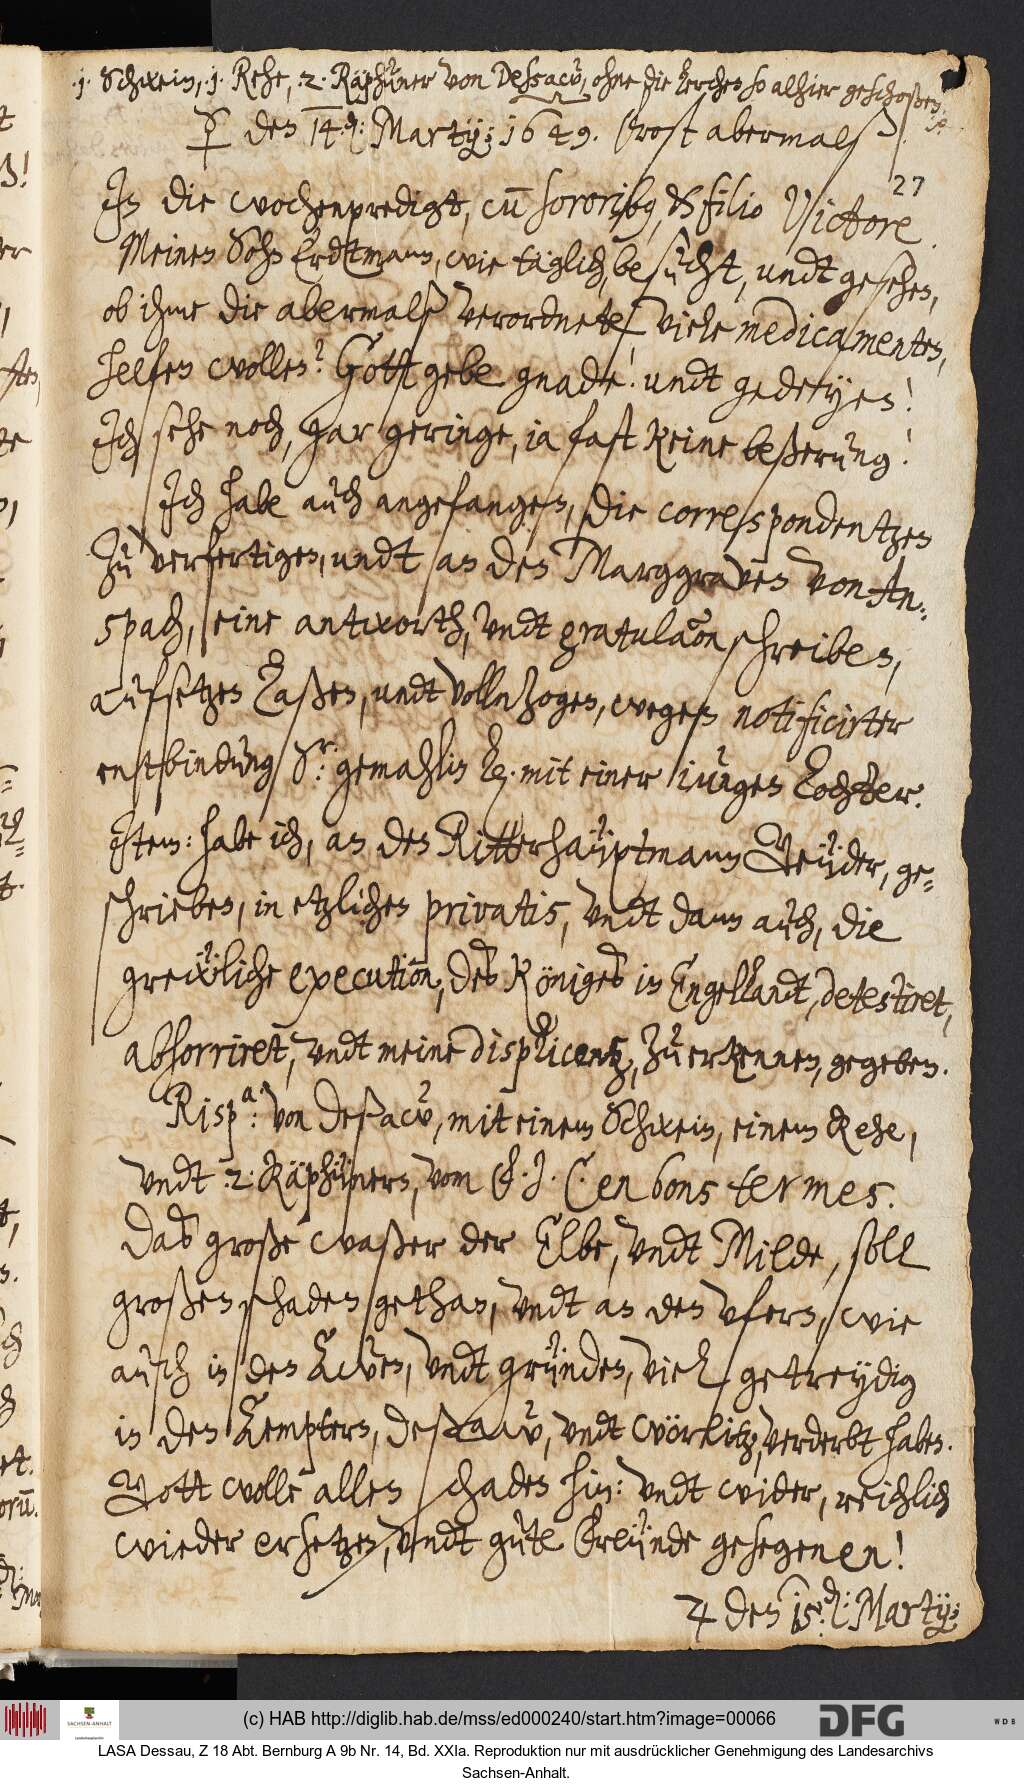 .1. Schwein, .1. Rehe, .2. Räphüner von Deßaw, ohne die Lerchen so alhier geschoßen.
☿ den 14.d: Martij: 1649. Frost abermalß.
27
Jn die wochenpredigt, cum sororibus, & filio Victore.
Meinen Sohn Erdtmann, wie täglich, besucht, undt gesehen,
ob ihme die abermalß verordnete, viele medicamenten,
helfen wollen? Gott gebe gnade! undt gedeyen!
Jch sehe noch, gar geringe, ia fast keine beßerung!
Jch habe auch angefangen, die correspondentzen
zu verfertigen, undt an den Marggraven von An-
spach, eine antworth, undt gratulaõn schreiben,
aufsetzen laßen, undt vollnzogen, wegen notificirter
entbindung Sr: gemahlin L. mit einer iungen Tochter.
Jtem: habe ich, an den Ritterhaüptmann Geüder, ge-
schrieben, in etzlichen privatis, undt dann auch, die
grewliche execution, des Königes in Engellandt, detestiret,
abhorriret, undt meine displicentz, zu erkennen, gegeben.
Rispa: von Deßaw, mit einem Schwein, einem Rehe,
undt .2. Räphünern, vom F. J. C. en bons termes.
Das große waßer der Elbe, undt Milde, soll
großen schaden gethan, undt an den ufern, wie
auch in den Awen, undt gründen, viel getreydig
in den Aemptern, Deßaw, undt Wörlitz, verderbt haben.
Gott wolle allen schaden hin: undt wider, reichlich
wieder ersetzen, undt gute Freünde gesegenen!
♃ den 15.d: Martij:
(c) HAB http://diglib.hab.de/mss/ed000240/start.htm?image=00066
DFG
WDB
SACHSEN-ANHALT
LASA Dessau, Z 18 Abt. Bernburg A 9b Nr. 14, Bd. XXIa. Reproduktion nur mit ausdrücklicher Genehmigung des Landesarchivs
Sachsen-Anhalt.